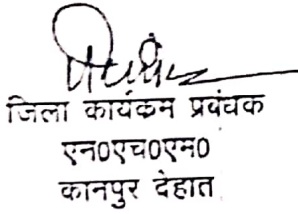 जिला कार्यक्रम प्रबंधक
एन0एच0एम0
कानपुर देहात